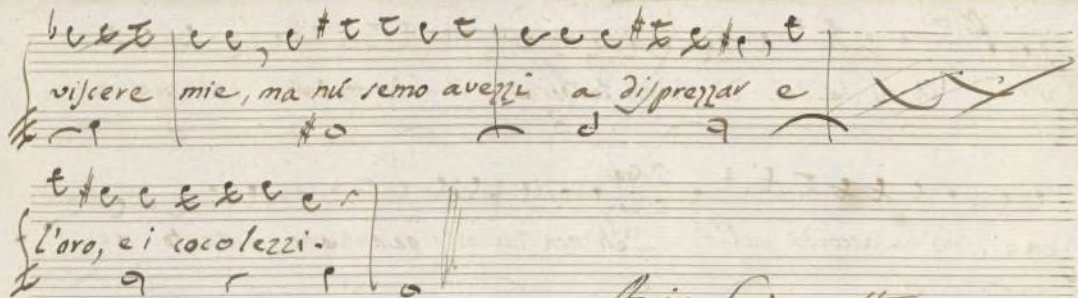 viscere mie, ma nú semo avezzi a disprezzar e
l'oro, e i cocolezzi.